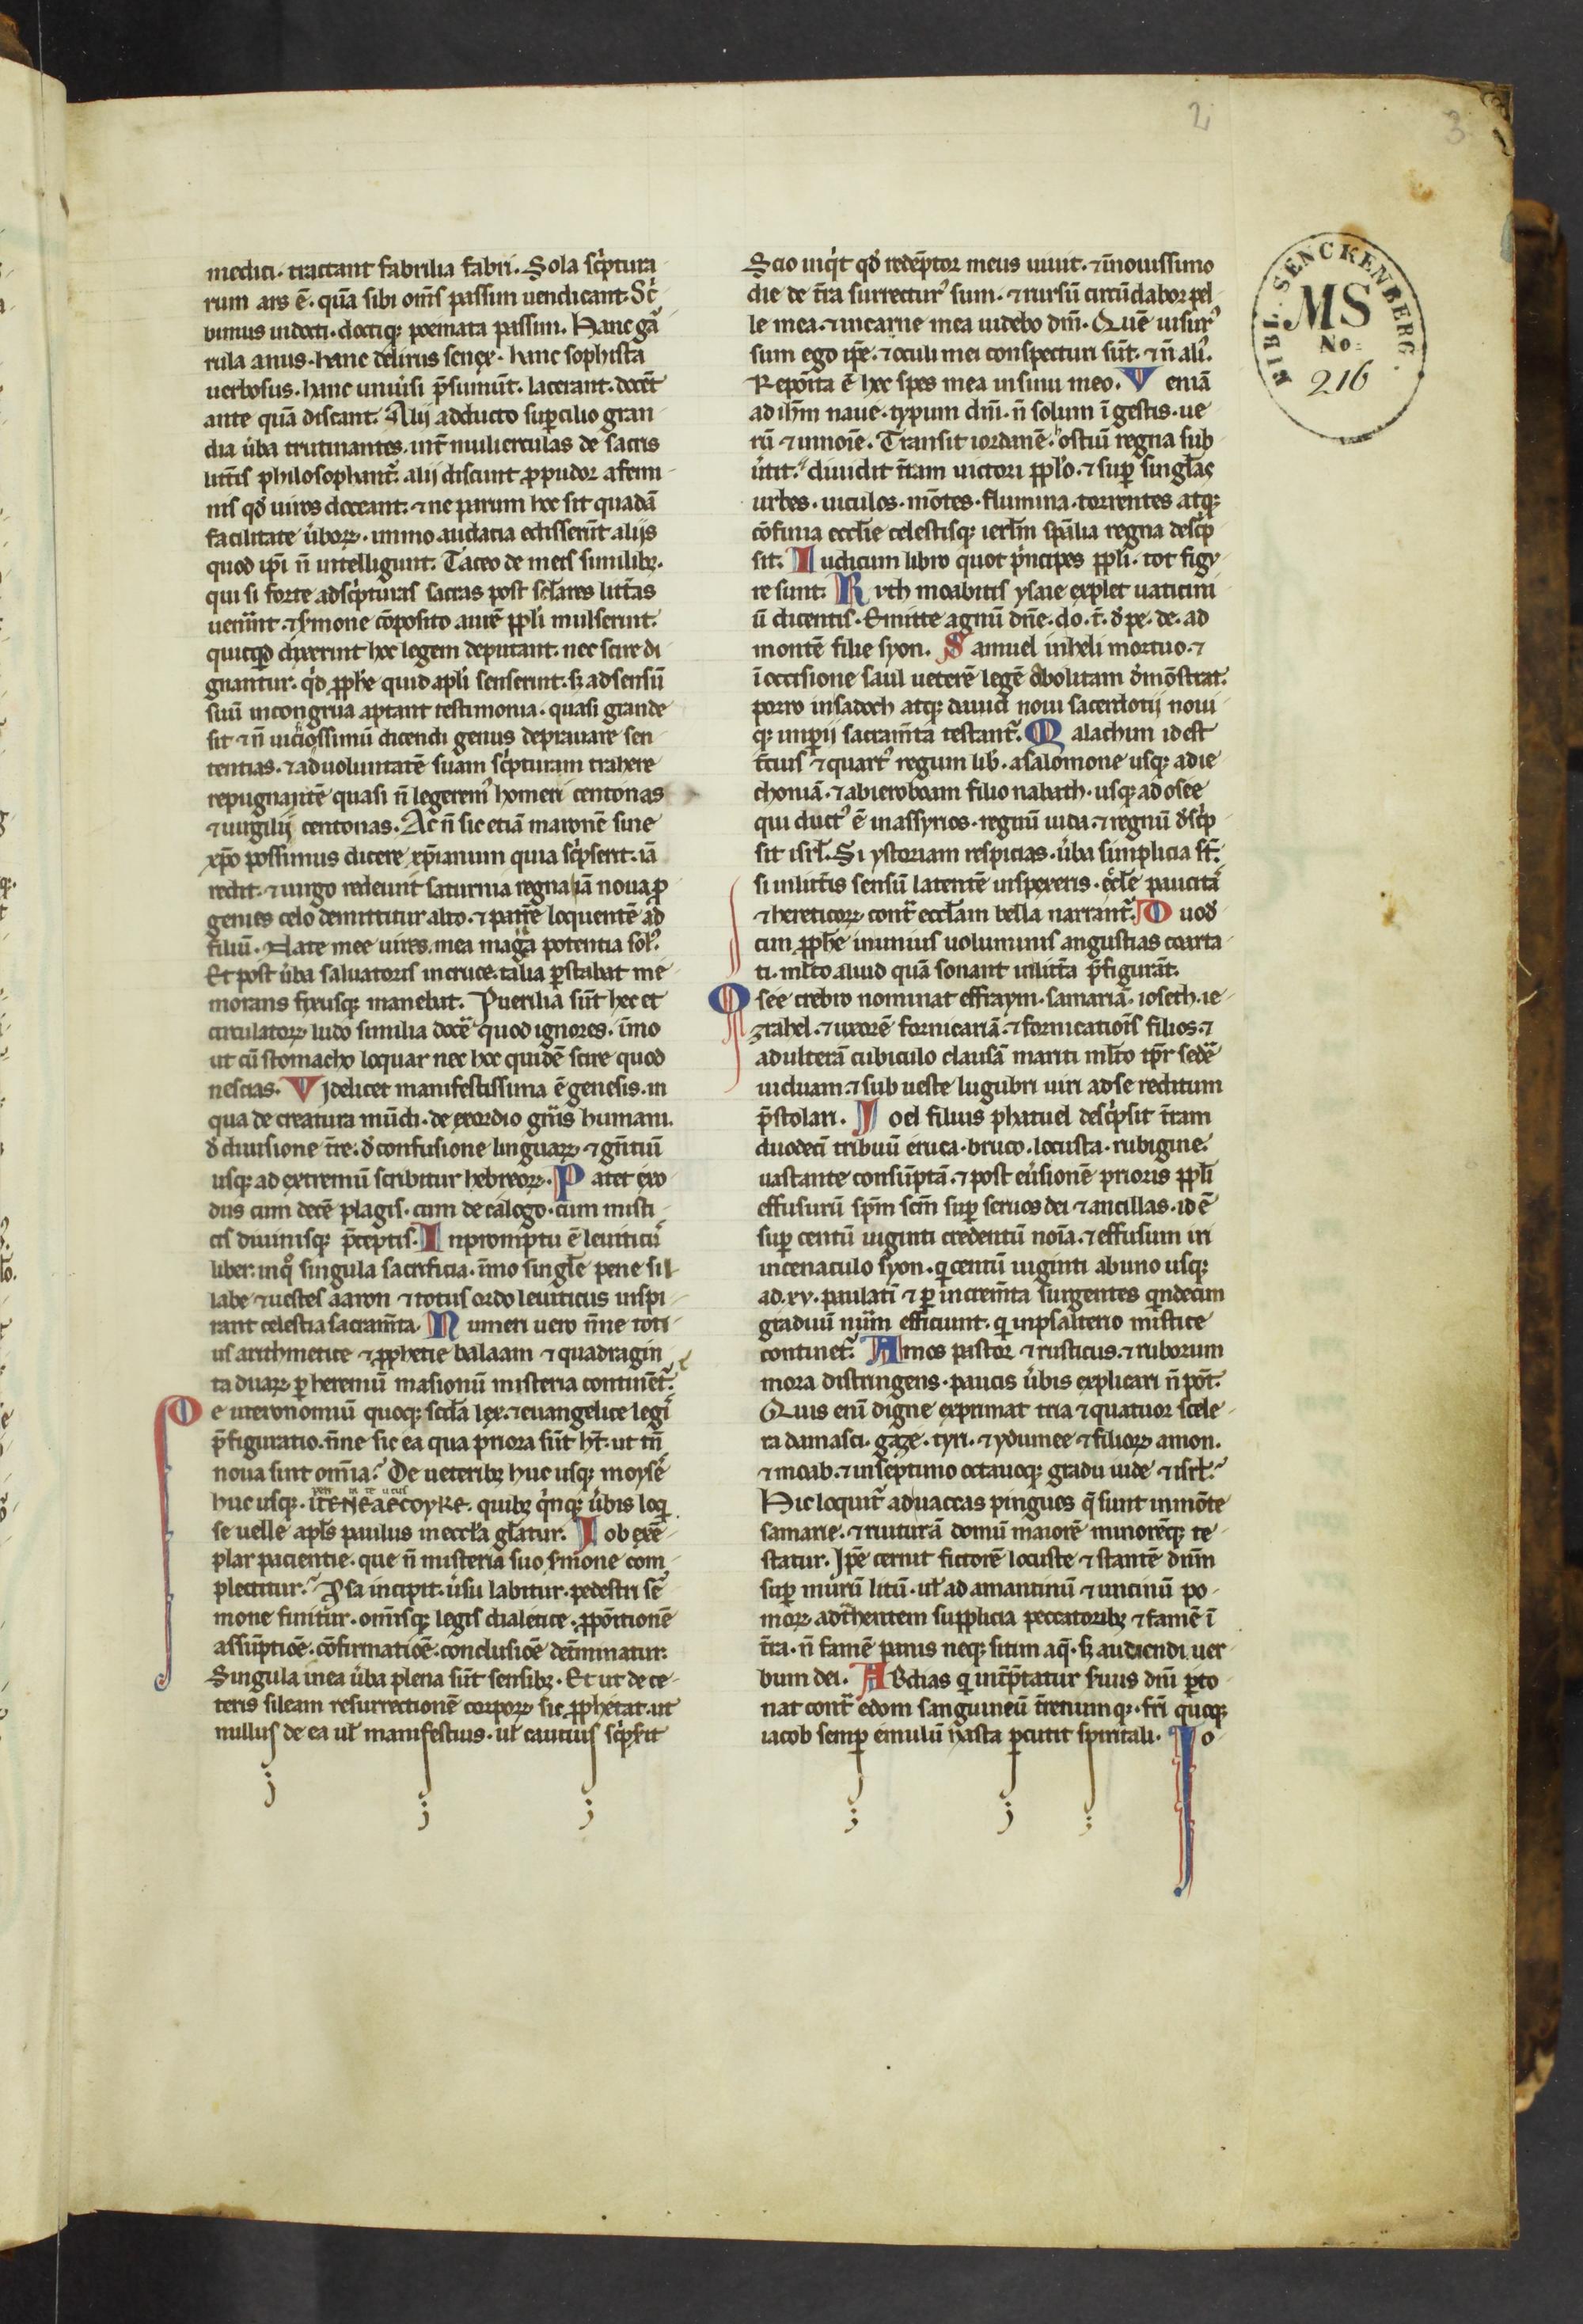 2
3
BIBL. SENCKENBERG.
MS
No:
216
medici· tractant fabrilia fabri. Sola sc̾ptura
rum ars ē. quā sibi om̄s passim uendicant. Sc̾i
bimus indocti. doctiqꝫ poemata passim. Hanc gar̄
rula anus· hanc delirus senex· hanc sophista
uerbosus. hanc uniu̾si p̄sumūt. lacerant. docēt
ante quā discant. Alij adducto suꝑcilio gran
dia u̾ba trutinantes. int̄ mulierculas de sacris
litt̄is philosophant̾. alij discunt ꝓ pudor a femi
nis qd̾ uiros doceant. ⁊ ne parum hoc sit quadā
facilitate u̾boꝝ· immo audacia edisserūt alijs
quod ip̄i n̄ intelligunt. Taceo de meis similibꝫ.
qui si forte ad sc̾pturas sacras post sc̄lares litt̄as
uen̄int. ⁊ s̾mone cōposito aurē ppl̄i mulserint.
quicqd̾ dixerint hoc legem dei putant. nec scire di
gnantur. qd̾ ꝓph̄e quid apl̄i senserint. sꝫ ad sensū
suū incongrua aptant testimonia. quasi grande
sit ⁊ n̄ uiciosissimū dicendi genus deprauare sen
tentias. ⁊ ad uoluntatē suam sc̾pturam trahere
repugnantē quasi n̄ legerem̾ homeri centonas
⁊ uirgilij centonas. Ac n̄ sic etiā maronē sine
xp̄o possimus dicere xp̄ianum quia sc̾pserit. iā
redit. ⁊ uirgo redeunt saturnia regna iā noua ꝓ
genies celo demittitur alto. ⁊ patrē loquentē ad
filiū. Nate mee uires. mea magna potentia sol̾.
Et post u̾ba saluatoris in cruce. talia ꝑstabat me
morans fixusqꝫ manebat. Puerilia sūt hec et
circulatoꝝ ludo similia docē quod ignores. īmo
ut cū stomacho loquar nec hoc quidē scire quod
nescias. Videlicet manifestissima ē genesis. in
qua de creatura mūdi. de exordio gn̄is humani.
d̾ diuisione t̄re. d̾ confusione linguaꝝ ⁊ gn̄tiū
usqꝫ ad extremū scribitur hebreoꝝ. Patet exo
dus cum decē plagis. cum decalogo. cum misti
cis diuinisqꝫ p̄ceptis. In promptu ē leuitic̾
liber. in qͦ singula sacrificia. īmo singl̄e pene sil
labe ⁊ uestes aaron ⁊ totus ordo leuiticus inspi
rant celestia sacram̄ta. Numeri uero n̄ne toti
us arithmetice ⁊ ꝓphetie balaam ⁊ quadragin
ta duaꝝ ꝑ heremū masionū misteria continēt̾.
Deuteronomiū quoqꝫ scd̄a lex. ⁊ euangelice legi̾
p̄figuratio. n̄ne sic ea qua priora sūt ht̄. ut tn̄
noua sint om̄ia. De ueteribꝫ huc usqꝫ moyse̾
huc usqꝫ. quibꝫ q̾nqꝫ u̾bis loq̾
se uelle apl̄s paulus in eccl̄a gl̄atur. Iob exē
plar pacientie. que n̄ misteria suo s̾mone com
plectitur. Psa incipit. u̾su labitur. pedestri s̾
mone finitur. om̄isqꝫ legis dialetice. ꝓpōitionē
assūptiōe. cōfirmatiōe. conclusiōe det̄minatur.
Singula in ea u̾ba plena sūt sensibꝫ. Et ut de ce
teris sileam resurrectionē corpoꝝ sic ꝓphetat. ut
nullus de ea ul̄ manifestius. ul̄ cautius sc̾pserit
Scio inq̾t qd̾ redēptor meus uiuit. ⁊ ī nouissimo
die de t̄ra surrectur̾ sum. ⁊ rursū circūdabor pel
le mea. ⁊ in carne mea uidebo dm̄. Quē uisur̾
sum ego ip̄e. ⁊ oculi mei conspecturi sūt. ⁊ n̄ ali̾.
Repōita ē hec spes mea in sinu meo. Veniā
ad ih̄m naue. typum dn̄i. n̄ solum ī gestis. ue
rū ⁊ in noīe. Transit iordanē. hostiū regna sub
u̾tit. diuidit t̄ram uictori ppl̄o. ⁊ suꝑ singl̄as
urbes. uiculos. mōtes. flumina. torrentes atqꝫ
cōfinia eccl̄ie celestisqꝫ ierl̄m sp̄alia regna desc̾p
sit. Iudicum libro quot p̾ncipes ppl̄i. tot figu
re sunt. Ruth moabitis ysaie explet uaticini
ū dicentis. Emitte agnū dn̄e. do. t̄. d̾ pe. de. ad
montē filie syon. Samuel in heli mortuo. ⁊
ī occisione saul ueterē legē abolitam d̾mōstrat.
porro in sadoch atqꝫ dauid noui sacerdotij noui
qꝫ imꝑij sacram̄ta testant̾. Malachim id est
t̄cius ⁊ quart̾ regum lib̾. a salomone usqꝫ ad ie
choniā. ⁊ ab ieroboam filio nabath. usqꝫ ad osee
qui duct̾ ē in assyrios. regnū iuda. ⁊ regnū d̾sc̾p
sit isrl̄. Si ystoriam respicias. u̾ba simplicia st̄.
si in litt̄is sensū latentē inspexeris. eccl̄e paucitā
⁊ hereticoꝝ cont̾ eccl̄am bella narrant̾. Duod̾
cim ꝓph̄e in unius uoluminis angustias coarta
ti. ml̄to aliud quā sonant in litt̄a p̄figurāt.
Osee crebro nominat effraym. samariā. ioseth. ie
zrahel. ⁊ uxorē fornicariā. ⁊ fornicatiōis filios. ⁊
adulterā cubiculo clausā mariti ml̄to tp̄r sedē
uiduam. ⁊ sub ueste lugubri uiri ad se reditum
p̄stolari. Ioel filius phatuel desc̾psit t̄ram
duodeci̅ tribuū eruca. bruco. locusta. rubigine.
uastante consūptā. ⁊ post eu̾sionē prioris ppl̄i
effusurū sp̄m sc̄m suꝑ seruos dei ⁊ ancillas. id ē
suꝑ centū uiginti credentū noīa. ⁊ effusum iri
in cenaculo syon. q̾ centū uiginti ab uno usqꝫ
ad. xv. paulatī ⁊ ꝑ increm̄ta surgentes q̾ndecim
graduū num̄ efficiunt. q̾ in psalterio mistice
continet̾. Amos pastor ⁊ rusticus. ⁊ ruborum
mora distringens. paucis u̾bis explicari n̄ pōt.
Quis enī digne exprimat tria ⁊ quatuor scele
ra damasci. gaze. tyri. ⁊ ydumee ⁊ filioꝝ amon.
⁊ moab. ⁊ in septimo octauoqꝫ gradu iude ⁊ isrl̄.
Hic loquit̾ ad uaccas pingues q̄ sunt in mōte
samarie. ⁊ ruiturā domū maiorē minorēqꝫ te
statur. Ip̄e cernit fictorē locuste ⁊ stantē dn̄m
suꝑ murū litū. ul̄ ad amantinū ⁊ uncinū po
moꝝ adt̾hentem supplicia peccatoribꝫ ⁊ famē ī
t̄ra. n̄ famē panis neqꝫ sitim aq̄. sꝫ audiendi uer
bum dei. Abdias q̾ int̾p̄tatur s̾uus dn̄i ꝑto
nat cont̾ edom sanguineū t̄renumqꝫ. fr̄i quoqꝫ
iacob semꝑ emulū hasta ꝑcutit spiritali. Io